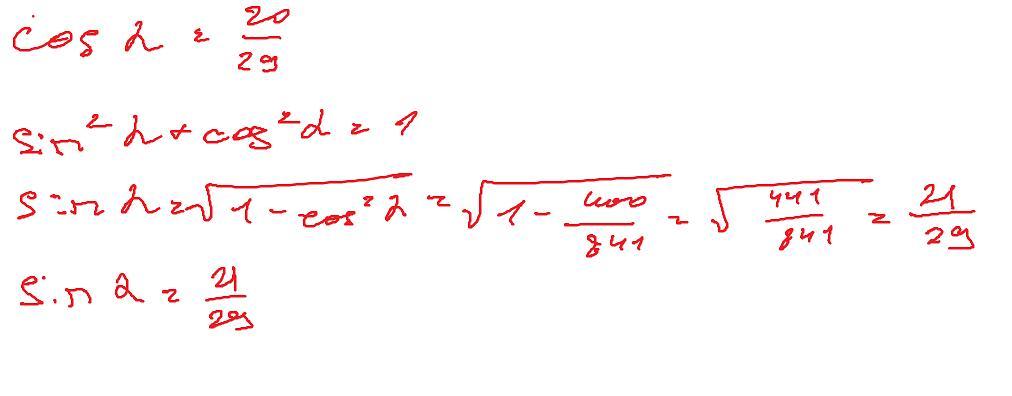 cos α = 20/29
sin² α + cos² α = 1
sin α = √(1 - cos² α) = √(1 - 400/841) = √(441/841) = 21/29
sin α = 21/29